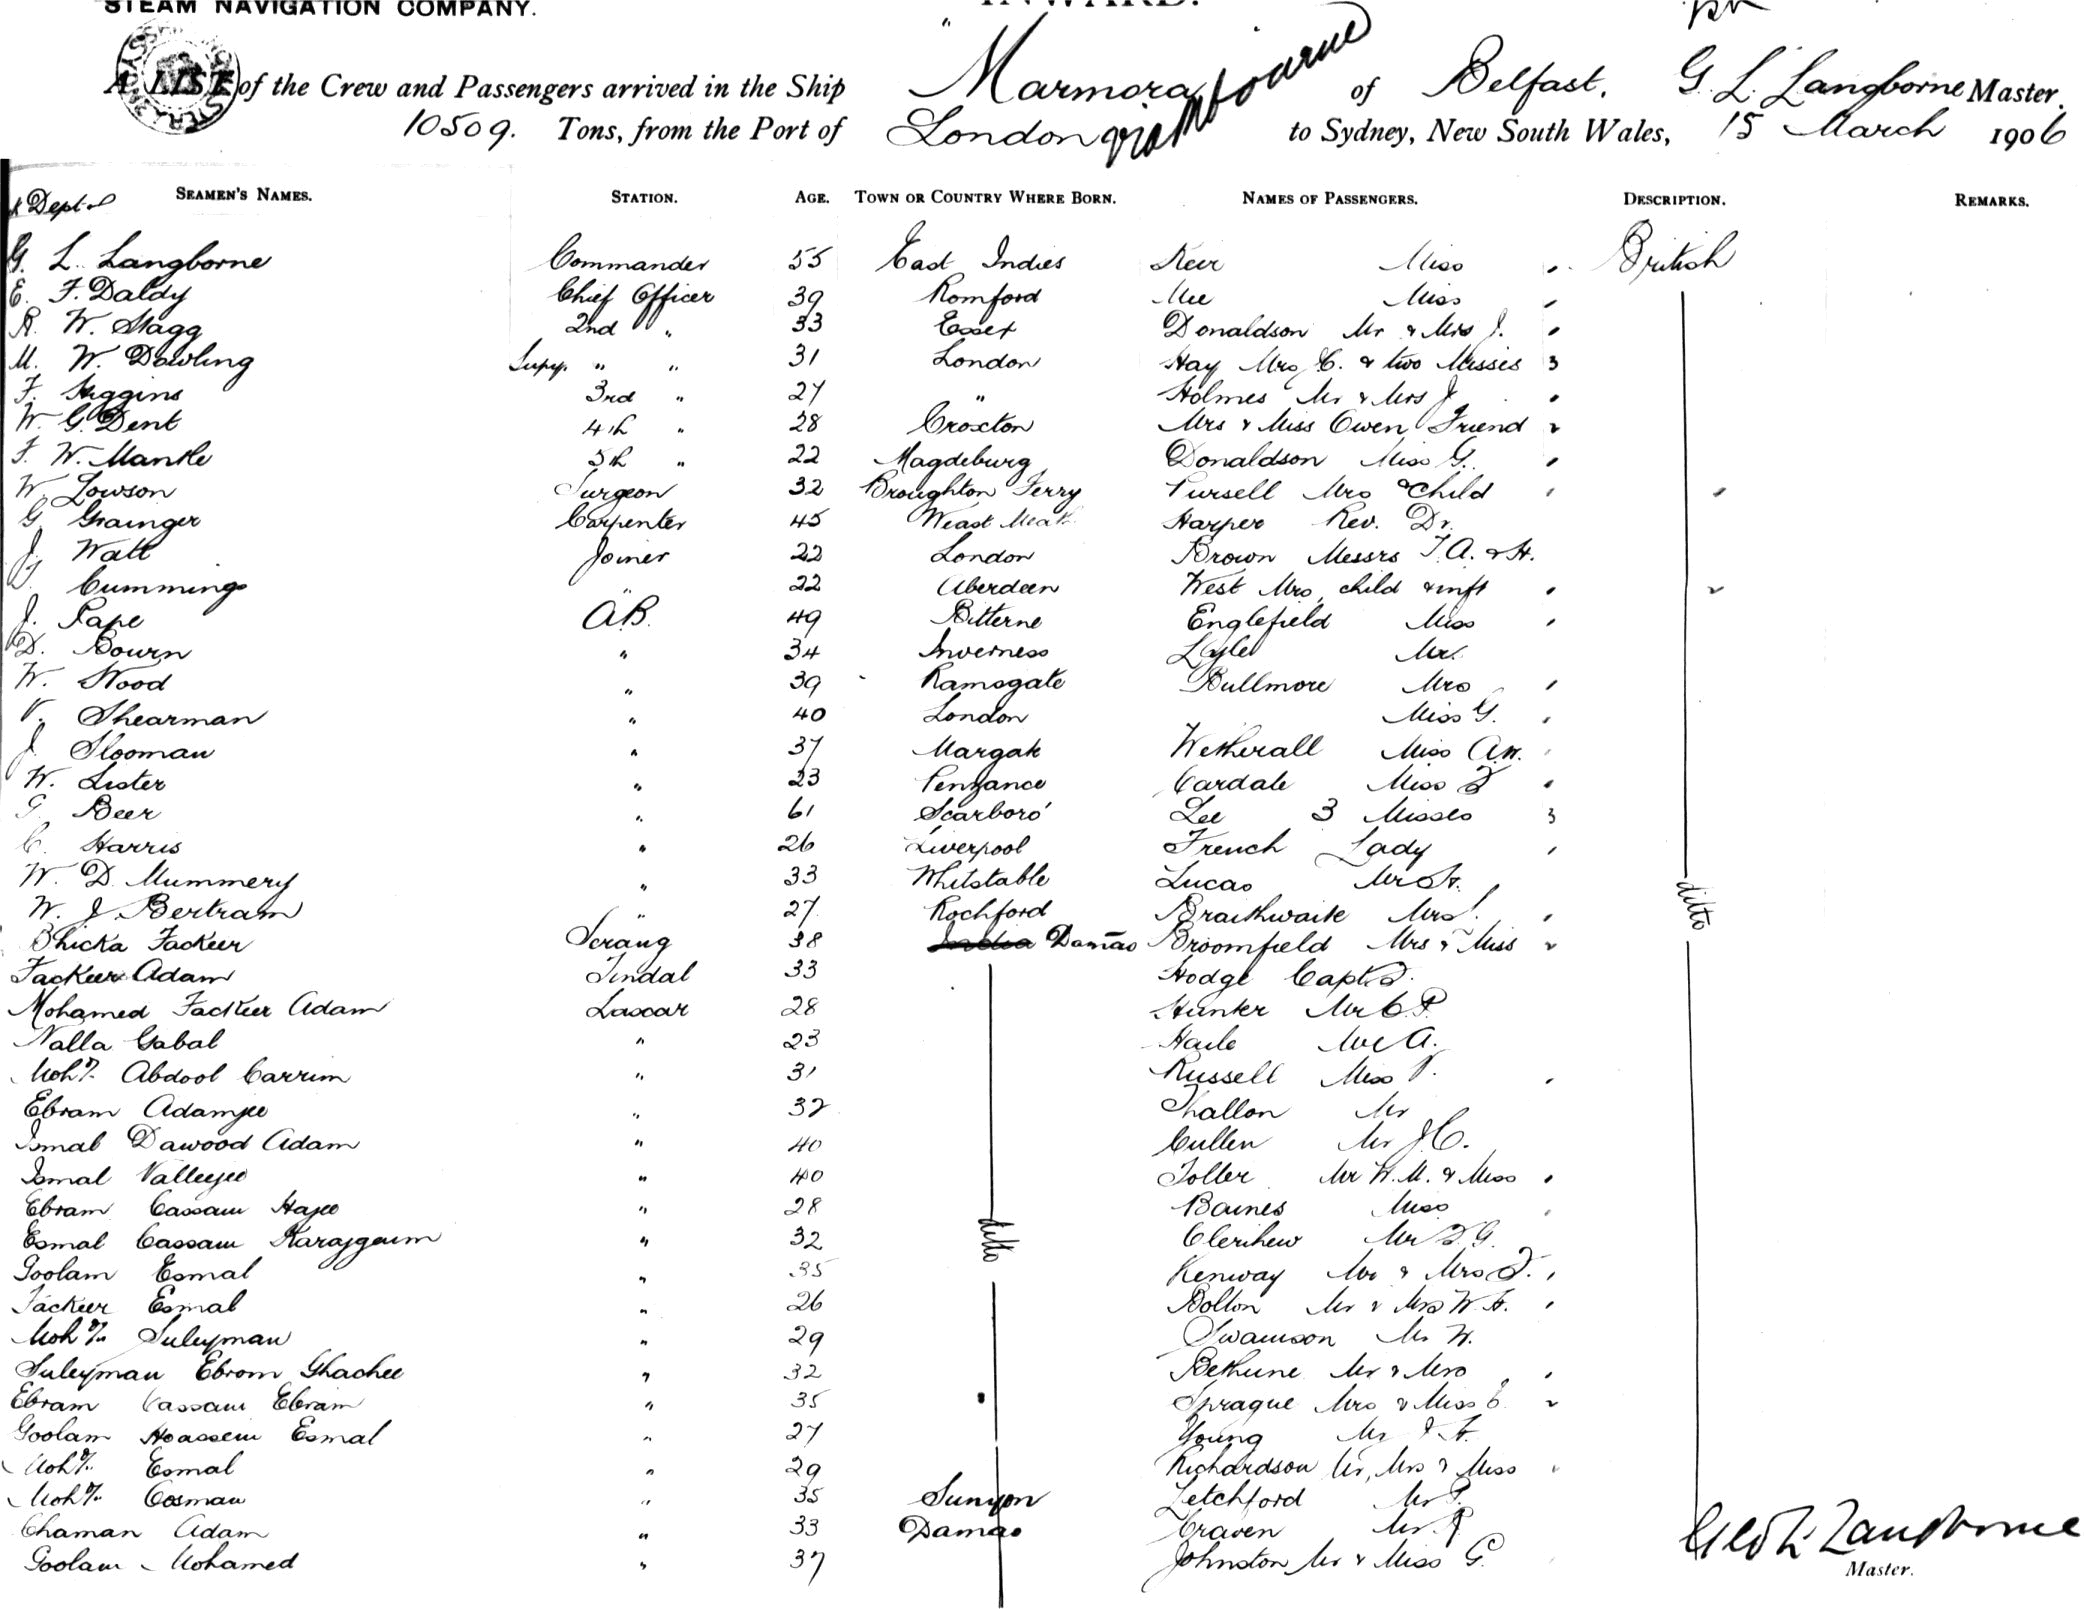 STEAM NAVIGATION COMPANY. INWARD.
A LIST of the Crew and Passengers arrived in the Ship " Marmora of Belfast, G. L. Langborne Master,
10509. Tons, from the Port of London via Melbourne to Sydney, New South Wales, 15 March 1906
Dept SEAMEN'S NAMES. STATION. AGE. TOWN OR COUNTRY WHERE BORN. NAMES OF PASSENGERS. DESCRIPTION. REMARKS.
G. L. Langborne Commander 55 East Indies Keir Miss British
E. F. Daldy Chief Officer 39 Romford Mee Miss
R. W. Stagg 2nd " 33 Essex Donaldson Mr & Mrs J.
M. W. Dowling Supy. " " 31 London Hay Mrs C. & two Misses 3
F. Higgins 3rd " 27 " Holmes Mr & Mrs J
W. G. Dent 4th " 28 Croxton Mrs & Miss Owen Friend 2
F. W. Mantle 5th " 22 Magdeburg Donaldson Miss G.
W. Lowson Surgeon 32 Broughton Ferry Pursell Mrs & Child
G. Grainger Carpenter 45 Weast Meath Harper Rev. Dr.
J. Watt Joiner 22 London Brown Messrs T. A. & H.
Cummings " 22 Aberdeen West Mrs, child & inft
J. Pape A.B. 49 Bitterne Englefield Miss
D. Bourn " 34 Inverness Lyle Mr.
W. Wood " 39 Ramsgate Bullmore Mrs
V. Shearman " 40 London Miss G.
J. Slooman " 37 Margate Wetherall Miss A.M.
W. Lister " 23 Penzance Cardale Miss
G. Beer " 61 Scarboro' Lee 3 Misses 3
C. Harris " 26 Liverpool French Lady
W. D. Mummery " 33 Whitstable Lucas Mr H.
W. J. Bertram " 27 Rochford Braithwaite Mrs
Bhicka Fackeer Serang 38 India Damao Broomfield Mrs & Miss 2
Fackeer Adam Tindal 33 Hodge Capt.
Mohamed Fackeer Adam Lascar 28 Hunter Mr C. P.
Nalla Gabal " 23 Haile Mr A.
Mohd. Abdool Carrim " 31 Russell Miss V.
Ebram Adamjee " 32 Thallon Mr
Ismal Dawood Adam " 40 Cullen Mr J. C.
Ismal Valleejee " 40 Toller Mr W. M. & Miss
Ebram Cassam Hajee " 28 Baines Miss
Esmal Cassam Karajgaum " 32 ditto Clerihew Mr D. G. ditto
Goolam Esmal " 35 Kenway Mr & Mrs
Fackeer Esmal " 26 Bolton Mr & Mrs W. H.
Mohd. Suleyman " 29 Swanson Mr W.
Suleyman Ebrom Ghachee " 32 Bethune Mr & Mrs
Ebram Cassam Ebram " 35 Sprague Mrs & Miss E. 2
Goolam Hoassein Esmal " 27 Young Mr
Mohd. Esmal " 29 Richardson Mr, Mrs & Miss
Mohd. Oosman " 35 Sunyon Letchford Mr
Chaman Adam " 33 Damao Craven Mr. Geo L. Langborne
Goolam Mohamed " 37 Johnston Mr & Miss G. Master.